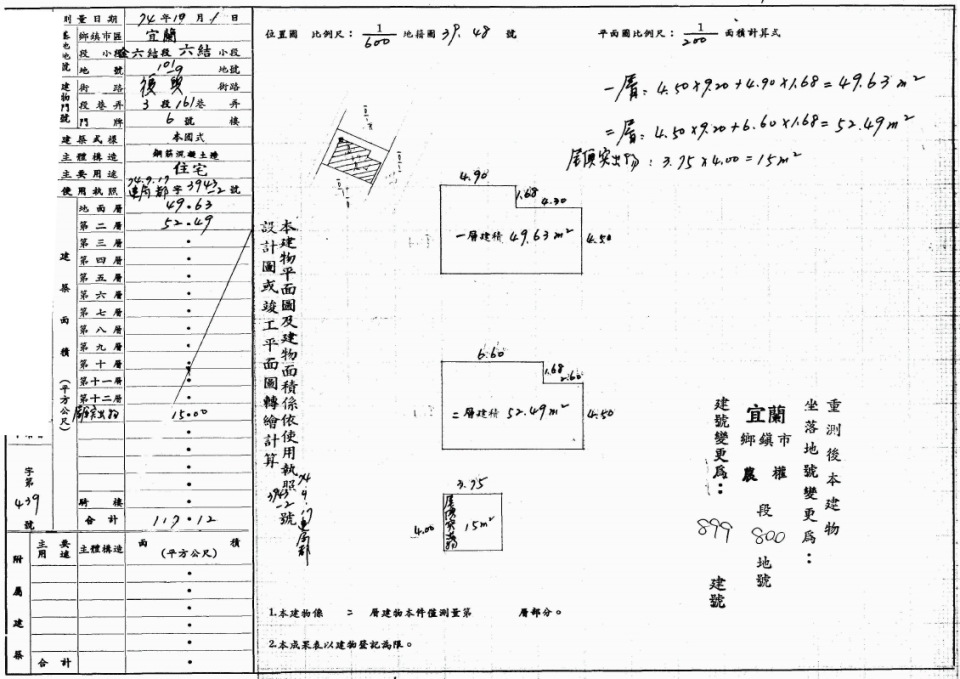 測量日期 74年10月1日
鄉鎮市區 宜蘭
段 小段 金六結段 六結 小段
地號 101-9 地號
街路 復興 街路
段巷弄 3段161巷 弄
門牌 6號 樓
建築式樣 本國式
主體構造 鋼筋混凝土造
主要用途 住宅
使用執照 74.9.17 建局都字3943-2號
建築面積(平方公尺)
地面層 49.63
第二層 52.49
第三層
第四層
第五層
第六層
第七層
第八層
第九層
第十層
第十一層
第十二層
屋頂突出物 15.00
騎樓
合計 117.12
字第
439
號
附屬建築
主要用途 主體構造 面積(平方公尺)
合計
位置圖 比例尺：1/600 地接圖 39.48 號
平面圖比例尺：1/200 面積計算式
一層：4.50×9.20+4.90×1.68=49.63m²
二層：4.50×9.20+6.60×1.68=52.49m²
屋頂突出物：3.75×4.00=15m²
4.90
1.68
4.30
一層建積 49.63m²
4.50
6.60
1.68
2.60
二層建積 52.49m²
4.50
3.75
4.00
屋頂突出物
15m²
本建物平面圖及建物面積係依使用執照74.9.17建局都
設計圖或竣工平面圖轉繪計算 3943-2號
重測後本建物
坐落地號變更為：
宜蘭鄉鎮市 農權段 800 地號
建號變更為：899 建號
1.本建物係 二 層建物本件僅測量第 層部分。
2.本成果表以建物登記為限。